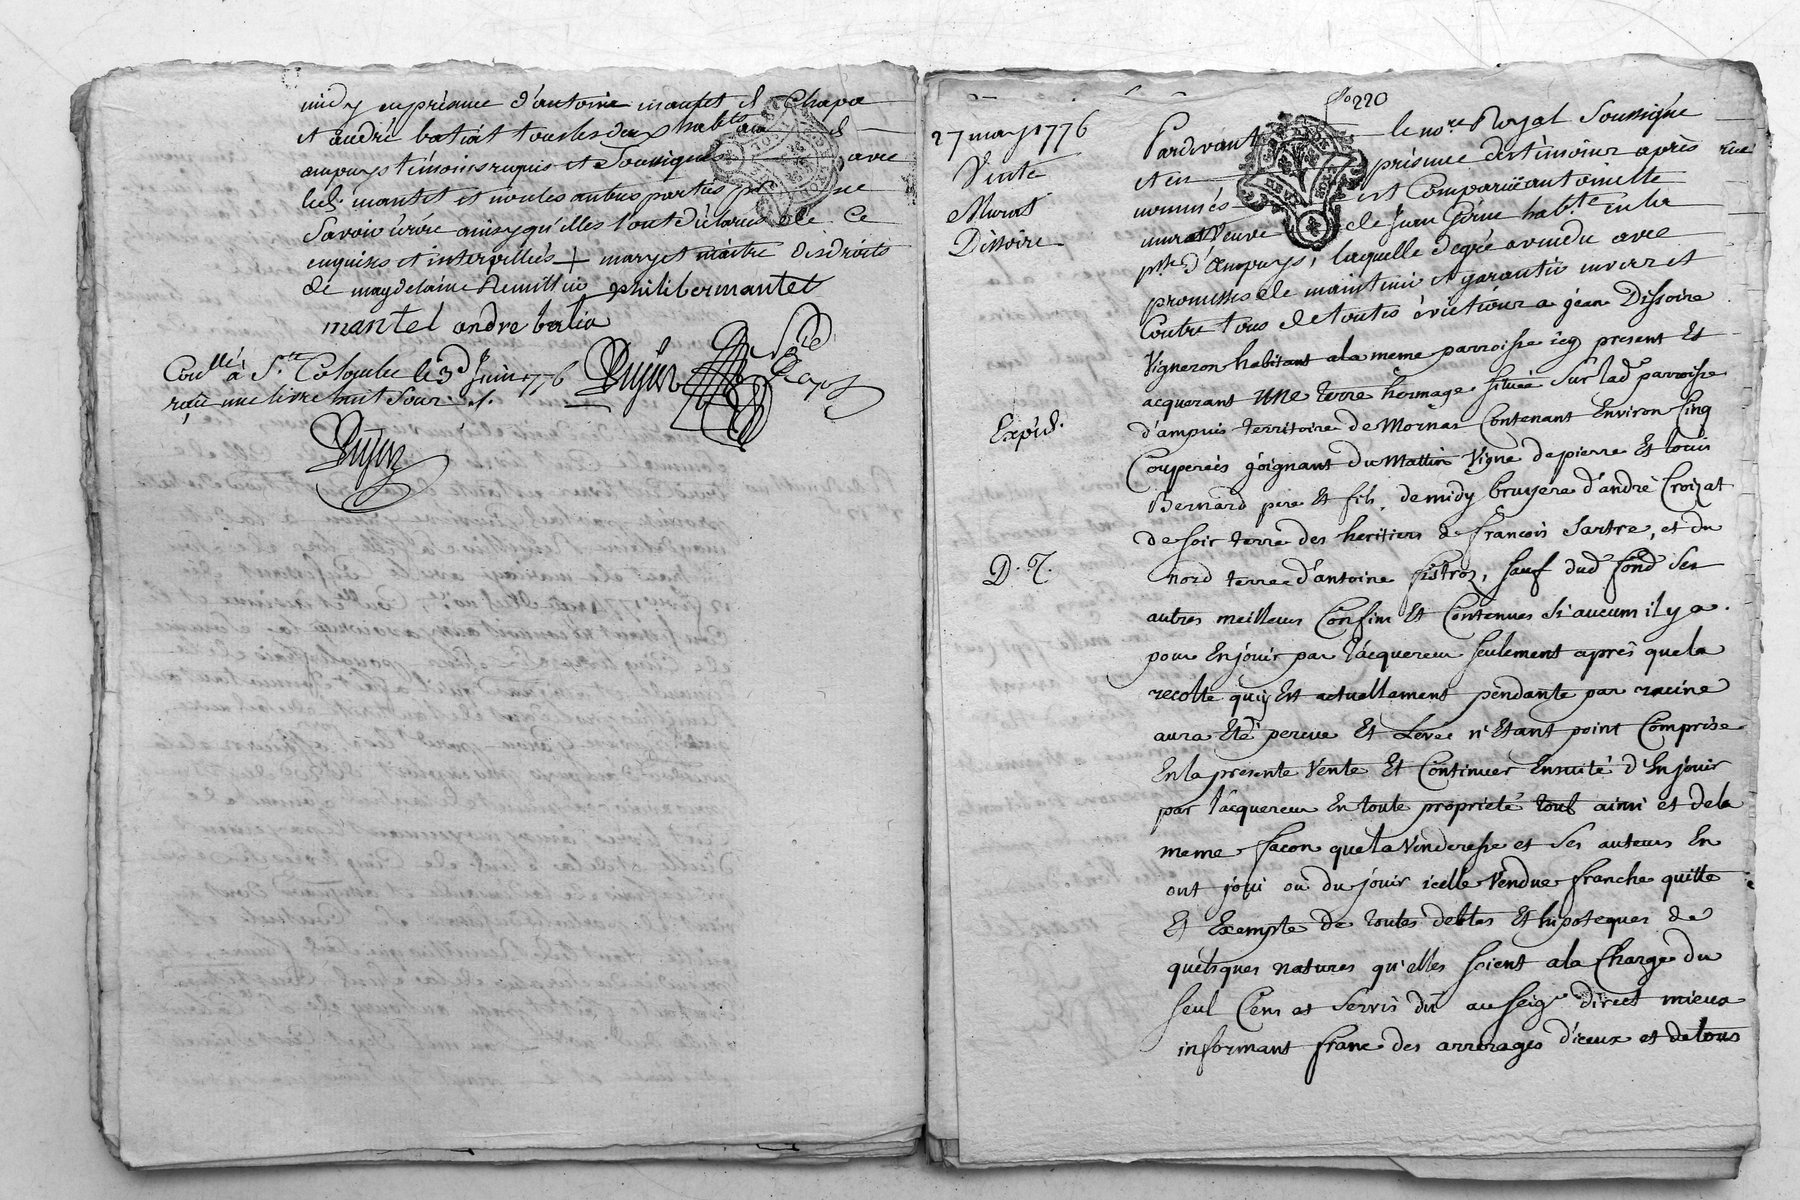 midy en présence d'antoine mantet d. Chapa
et andré batiat tous les deux habts aud. d.
ampuys témoins requis et Soussignés avec
led. mantet et non les autres parties pr ne
Savoir écrire ainsy qu'elles l'ont déclaré de ce
enquises et interpellées + mary et maitre des droits
de magdelaine Remillier philiber mantet
mantel andre batia
Conllé a Ste Colombe le 3e Juin 1776
reçu une livre huit sous
Dujun
Dujun
fo 220
27 may 1776
Vente
Murat
Dissoire
Expéd.
D. T.
Pardevant le nore Royal Soussigné
et en présence des témoins après
nommés est Comparüe antoinette
murat veuve de Jean habte en la
psse d'ampuys, laquelle de gré a vendu avec
promesses de maintenir et garantir envers et
Contre tous de toutes évictions a jean Dissoire
Vigneron habitant a la meme parroisse icy present Et
acquerant une terre hermage située Sur lad parroisse
d'ampuis territoire de Mornas Contenant Environ Cinq
Couperées joignant du Mattin Vigne de pierre Et louis
Bernard pere Et fils, de midy bruyere d'andré Croizat
de soir terre des heritiers de francois Sartre, et du
nord terre d'antoine fistroz, Sauf dud fond Ses
autres meilleurs Confins Et Contenues Si aucuns il y a.
pour En jouir par l'acquereur Seulement après que la
recolte quiy Est actuellament pendante par racine
aura Eté percue Et Levée n'Etant point Comprise
En la présente Vente Et Continuer Ensuite d'En jouir
par l'acquereur En toute propriété tout ainsi et de la
meme facon que la Venderesse et Ses auteurs En
ont joui ou du jouir icelle Vendue franche quitte
Et Exempte de toutes debtes Et hipoteques de
quelsques natures qu'elles soient a la Charge du
Seul Cens et Servis dû au Seigr direct mieux
informant franc des arrérages d'iceux et de tous